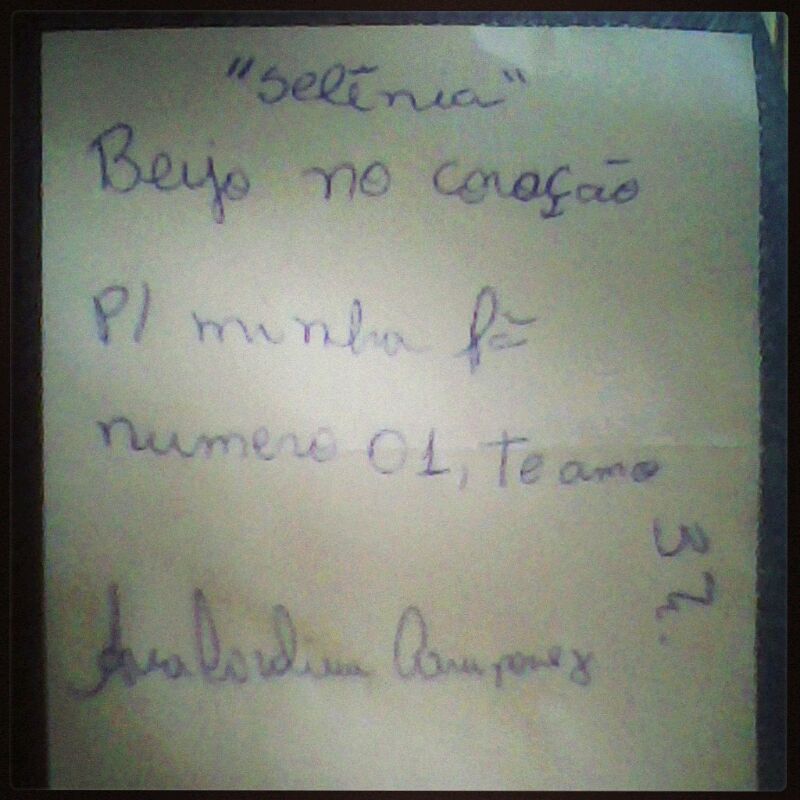 "Selênia"
Beijo no coração
P/ minha fã
numero 01, te amo
Ana Carolina